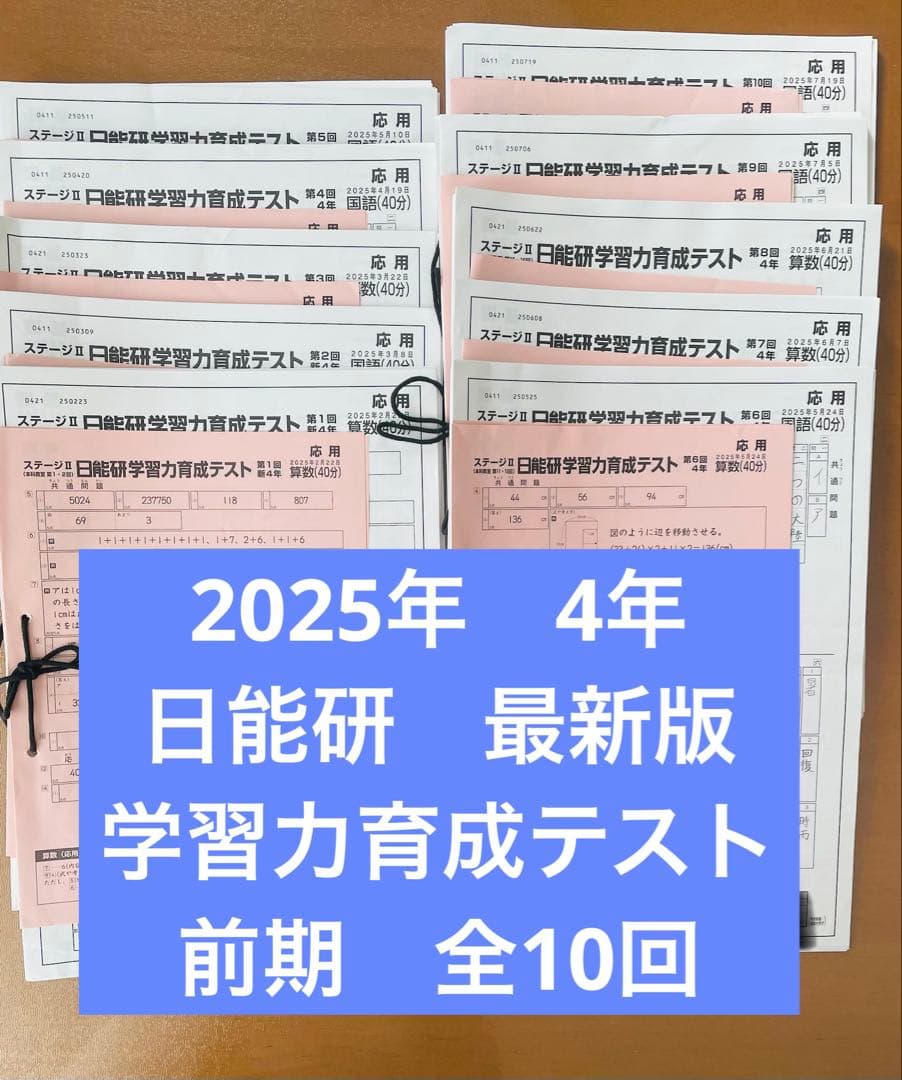 0411 250511
応用
ステージⅡ 日能研学習力育成テスト 第5回 2025年5月10日
0411 250420
応用
ステージⅡ 日能研学習力育成テスト 第4回 4年 2025年4月19日 国語(40分)
応用
0421 250323
応用
ステージⅡ 日能研学習力育成テスト 第3回 2025年3月22日
算数(40分)
応用
0411 250309
応用
ステージⅡ 日能研学習力育成テスト 第2回 新4年 2025年3月8日 国語(40分)
0421 250223
応用
ステージⅡ 日能研学習力育成テスト 第1回 新4年
応用
ステージⅡ 日能研学習力育成テスト 第1回 新4年 2025年2月22日 算数(40分)
共通問題
5024 237750 118 807
69 3
1+1+1+1+1+1+1+1、1+7、2+6、1+1+6
0411 250719
応用
ステージⅡ 日能研学習力育成テスト 第10回 2025年7月19日
国語(40分)
応用
0411 250706
応用
ステージⅡ 日能研学習力育成テスト 第9回 2025年7月5日
国語(40分)
応用
0421 250622
応用
ステージⅡ 日能研学習力育成テスト 第8回 4年 2025年6月21日 算数(40分)
0421 250608
応用
ステージⅡ 日能研学習力育成テスト 第7回 4年 2025年6月7日 算数(40分)
0411 250525
応用
ステージⅡ 日能研学習力育成テスト 第6回 2025年5月24日
国語(40分)
応用
ステージⅡ 日能研学習力育成テスト 第6回 4年 2025年5月24日 算数(40分)
共通問題
44 cm 56 cm 94 cm
136 cm
図のように辺を移動させる。
共通問題
イ
ア
二つの大陸
回復
2025年 4年
日能研 最新版
学習力育成テスト
前期 全10回